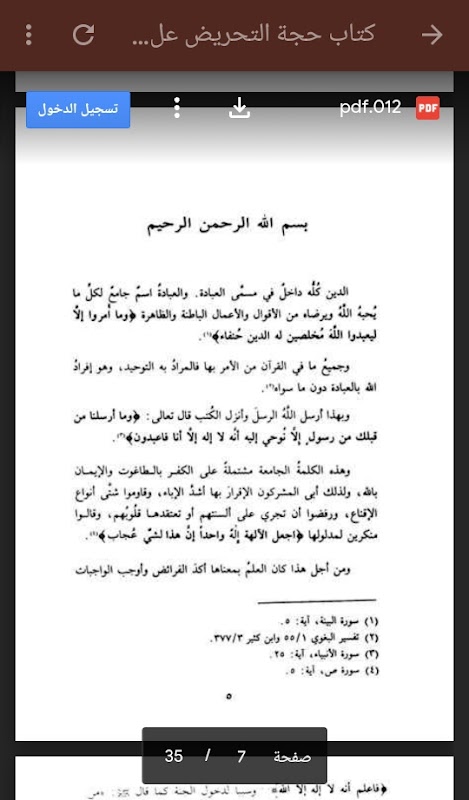 كتاب حجة التحريض عل...
تسجيل الدخول
pdf.012
PDF
بسم الله الرحمن الرحيم
الدين كُلُّه داخلٌ في مسمَّى العبادة. والعبادةُ اسمٌ جامعٌ لكلِّ ما
يُحبهُ اللَّهُ ويرضاه من الأقوال والأعمال الباطنة والظاهرة ﴿وما أمروا إلَّا
ليعبدوا اللَّهَ مُخلصين له الدين حُنفاء﴾(١).
وجميعُ ما في القرآن من الأمر بها فالمرادُ به التوحيد، وهو إفرادُ
الله بالعبادة دون ما سواه(٢).
وبهذا أرسل اللَّهُ الرسلَ وأنزل الكُتب قال تعالى: ﴿وما أرسلنا من
قبلك من رسولٍ إلَّا نُوحي إليه أنَّه لا إله إلَّا أنا فاعبدون﴾(٣).
وهذه الكلمةُ الجامعة مشتملةٌ على الكفر بالطاغوت والإيمان
بالله، ولذلك أبى المشركون الإقرارَ بها أشدَّ الإباء، وقاوموا شتَّى أنواع
الإقناع، ورفضوا أن تجري على ألسنتهم أو تعتقدها قلُوبُهم، وقالوا
منكرين لمدلولها ﴿اجعل الآلهة إلٰهاً واحداً إنَّ هذا لشيٌ عُجاب﴾(٤).
ومن أجل هذا كان العلمُ بمعناها أكدَ الفرائض وأوجب الواجبات
(١) سورة البينة، آية: ٥.
(٢) تفسير البغوي ٥٥/١ وابن كثير ٣٧٧/٣.
(٣) سورة الأنبياء، آية: ٢٥.
(٤) سورة ص، آية: ٥.
٥
صفحة 7 / 35
﴿فاعلم أنه لا إله إلا الله﴾ وسببا لدخول الجنة كما قال ﷺ: «من